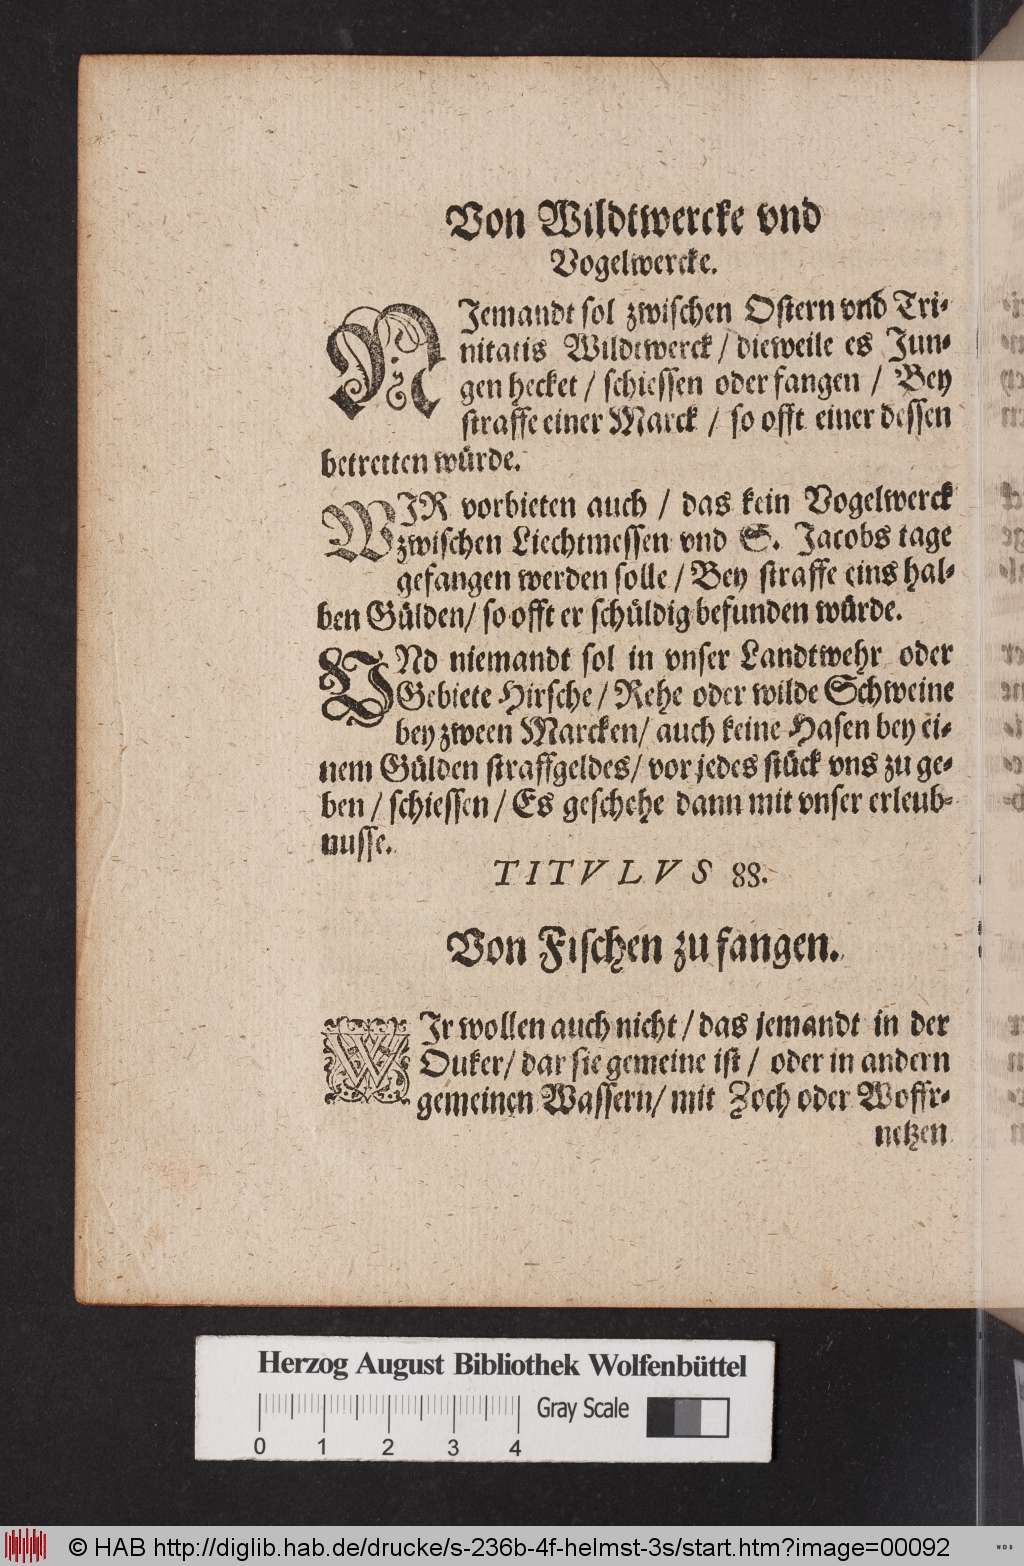 Von Wildtwercke vnd
Vogelwercke.
NJemandt sol zwischen Ostern vnd Tri-
nitatis Wildtwerck / dieweile es Jun-
gen hecket / schiessen oder fangen / Bey
straffe einer Marck / so offt einer dessen
betretten würde.
WJR vorbieten auch / das kein Vogelwerck
zwischen Liechtmessen vnd S. Jacobs tage
gefangen werden solle / Bey straffe eins hal-
ben Gülden / so offt er schüldig befunden würde.
VNd niemandt sol in vnser Landtwehr oder
Gebiete Hirsche / Rehe oder wilde Schweine
bey zween Marcken / auch keine Hasen bey ei-
nem Gülden straffgeldes / vor jedes stück vns zu ge-
ben / schiessen / Es geschehe dann mit vnser erleub-
nusse.
TITVLVS 88.
Von Fischen zu fangen.
WJr wollen auch nicht / das jemandt in der
Ouker / dar sie gemeine ist / oder in andern
gemeinen Wassern / mit Zoch oder Woffr-
netzen
Herzog August Bibliothek Wolfenbüttel
Gray Scale
0 1 2 3 4
© HAB http://diglib.hab.de/drucke/s-236b-4f-helmst-3s/start.htm?image=00092